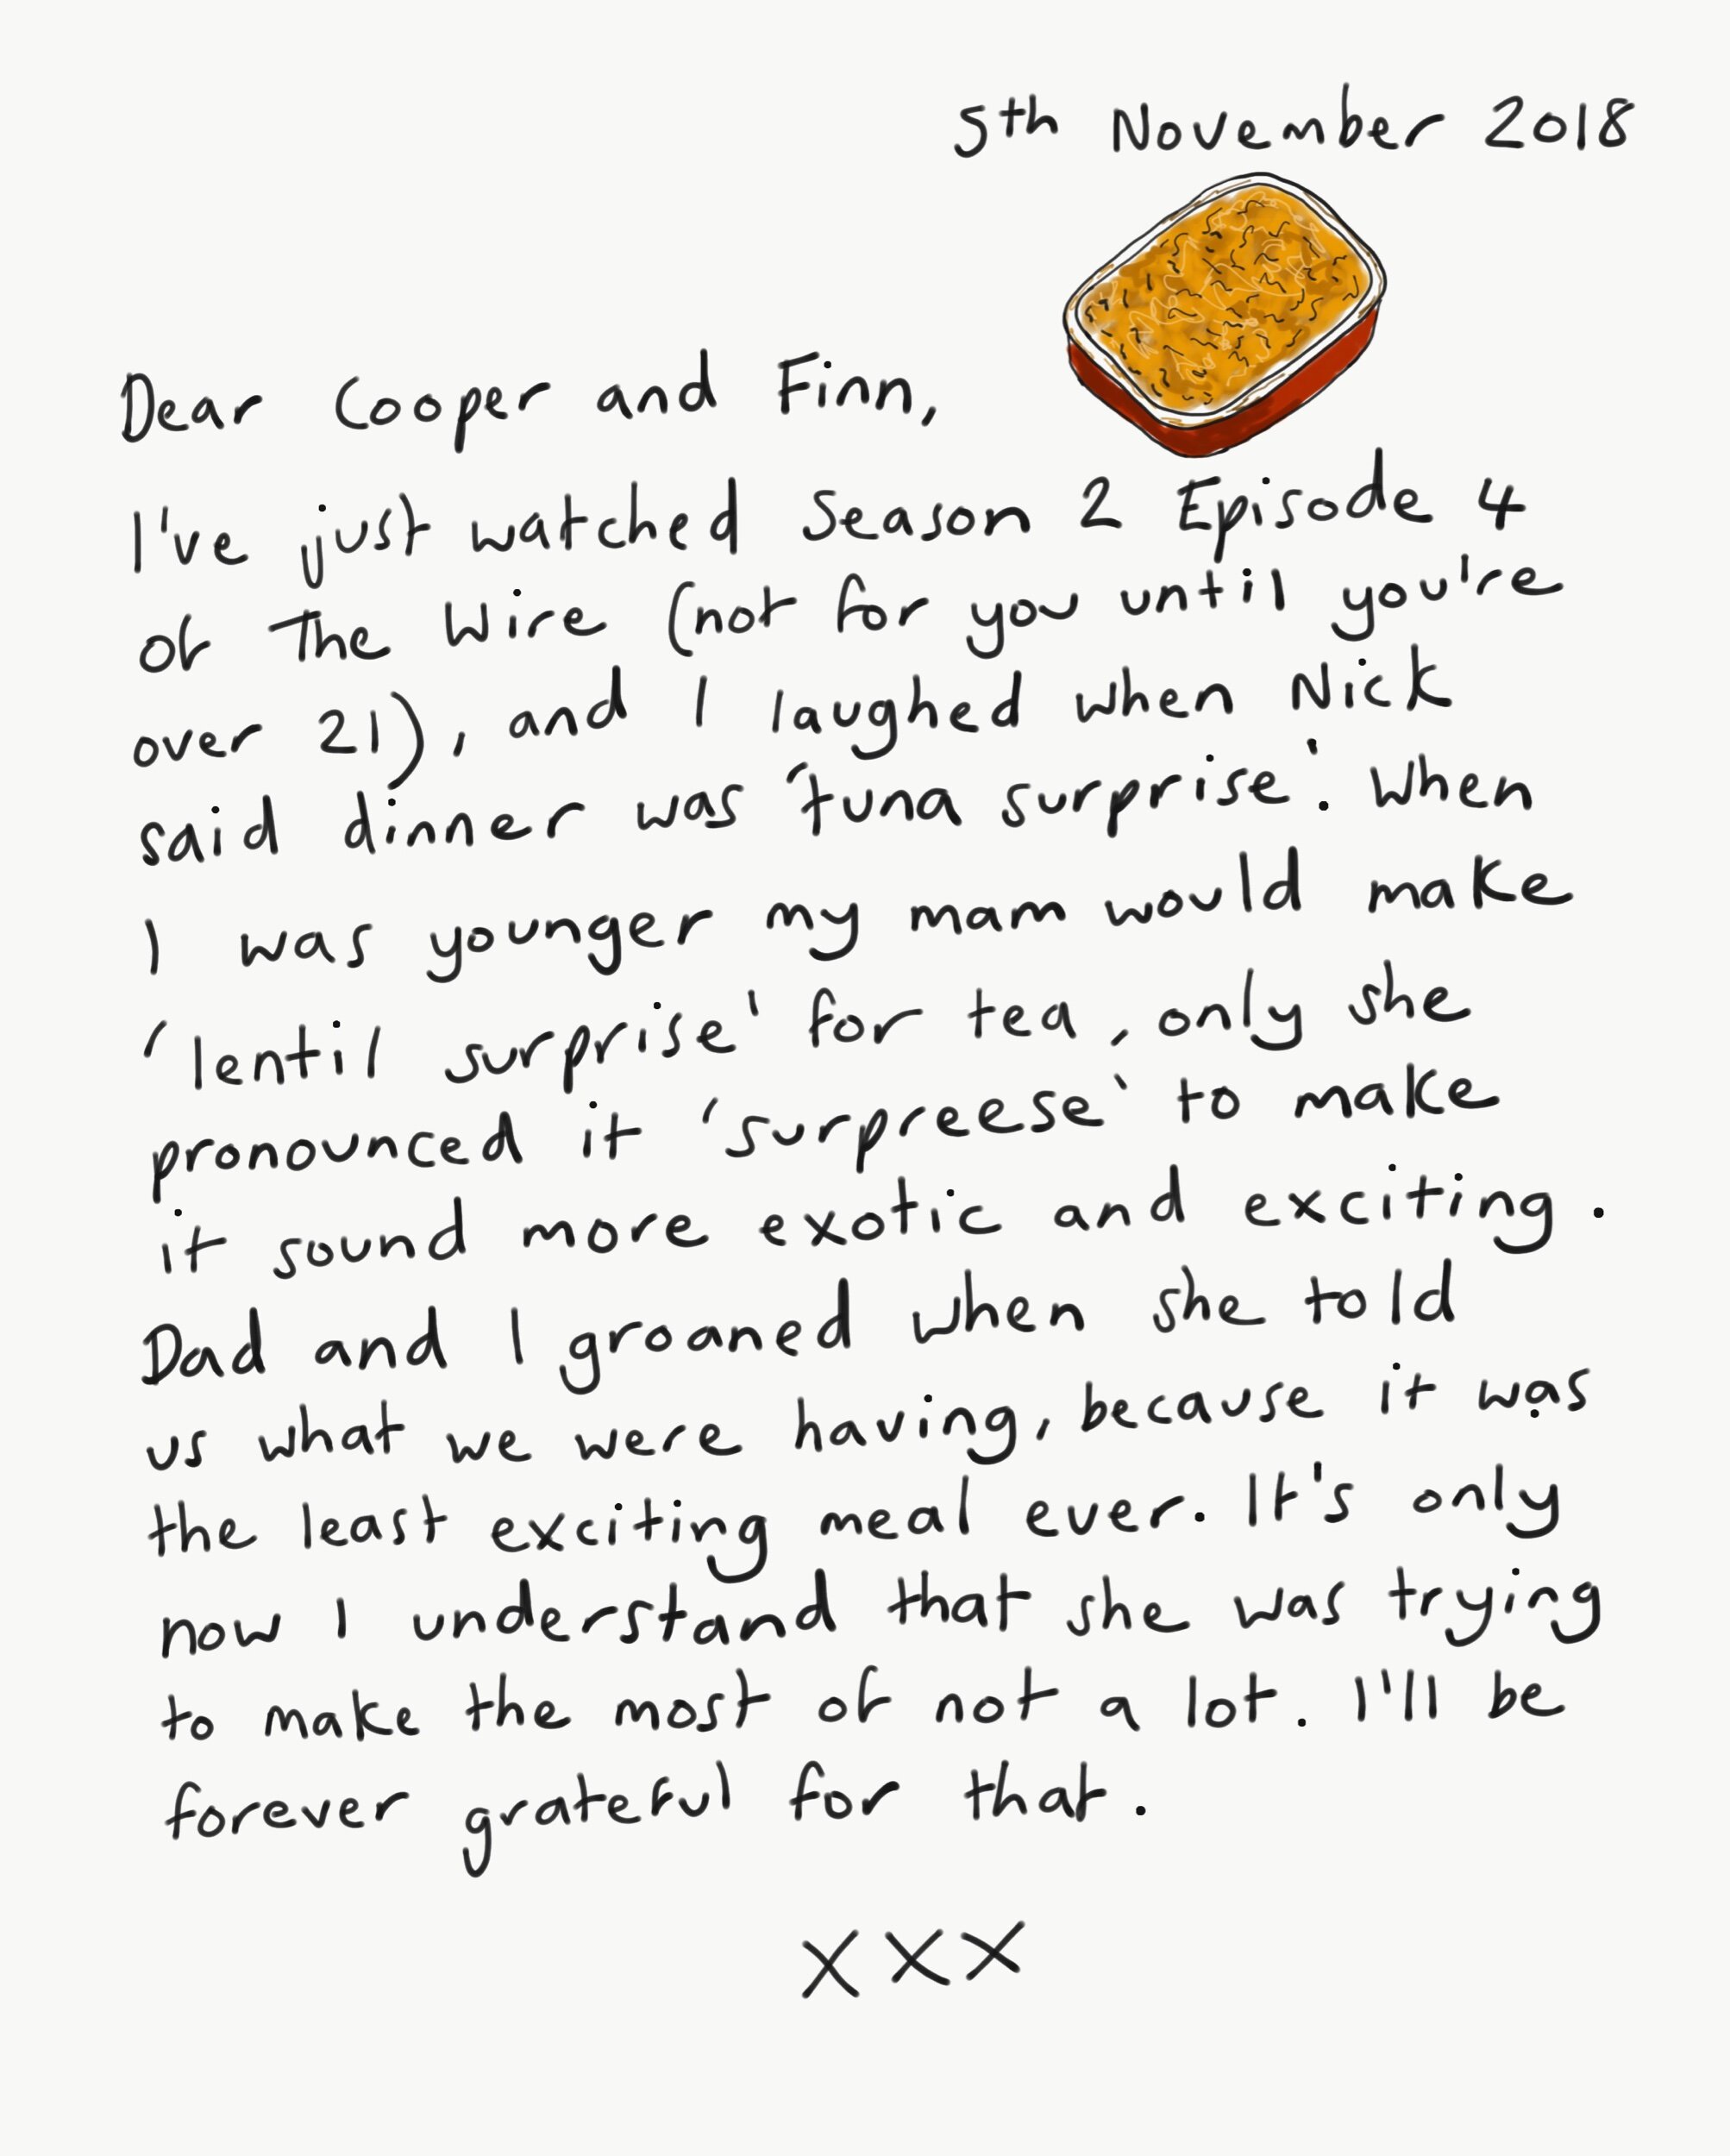 5th November 2018
Dear Cooper and Finn,
I've just watched Season 2 Episode 4
of The Wire (not for you until you're
over 21), and I laughed when Nick
said dinner was 'tuna surprise'. When
I was younger my mam would make
'lentil surprise' for tea, only she
pronounced it 'surpreese' to make
it sound more exotic and exciting.
Dad and I groaned when she told
us what we were having, because it was
the least exciting meal ever. It's only
now I understand that she was trying
to make the most of not a lot. I'll be
forever grateful for that.
XXX